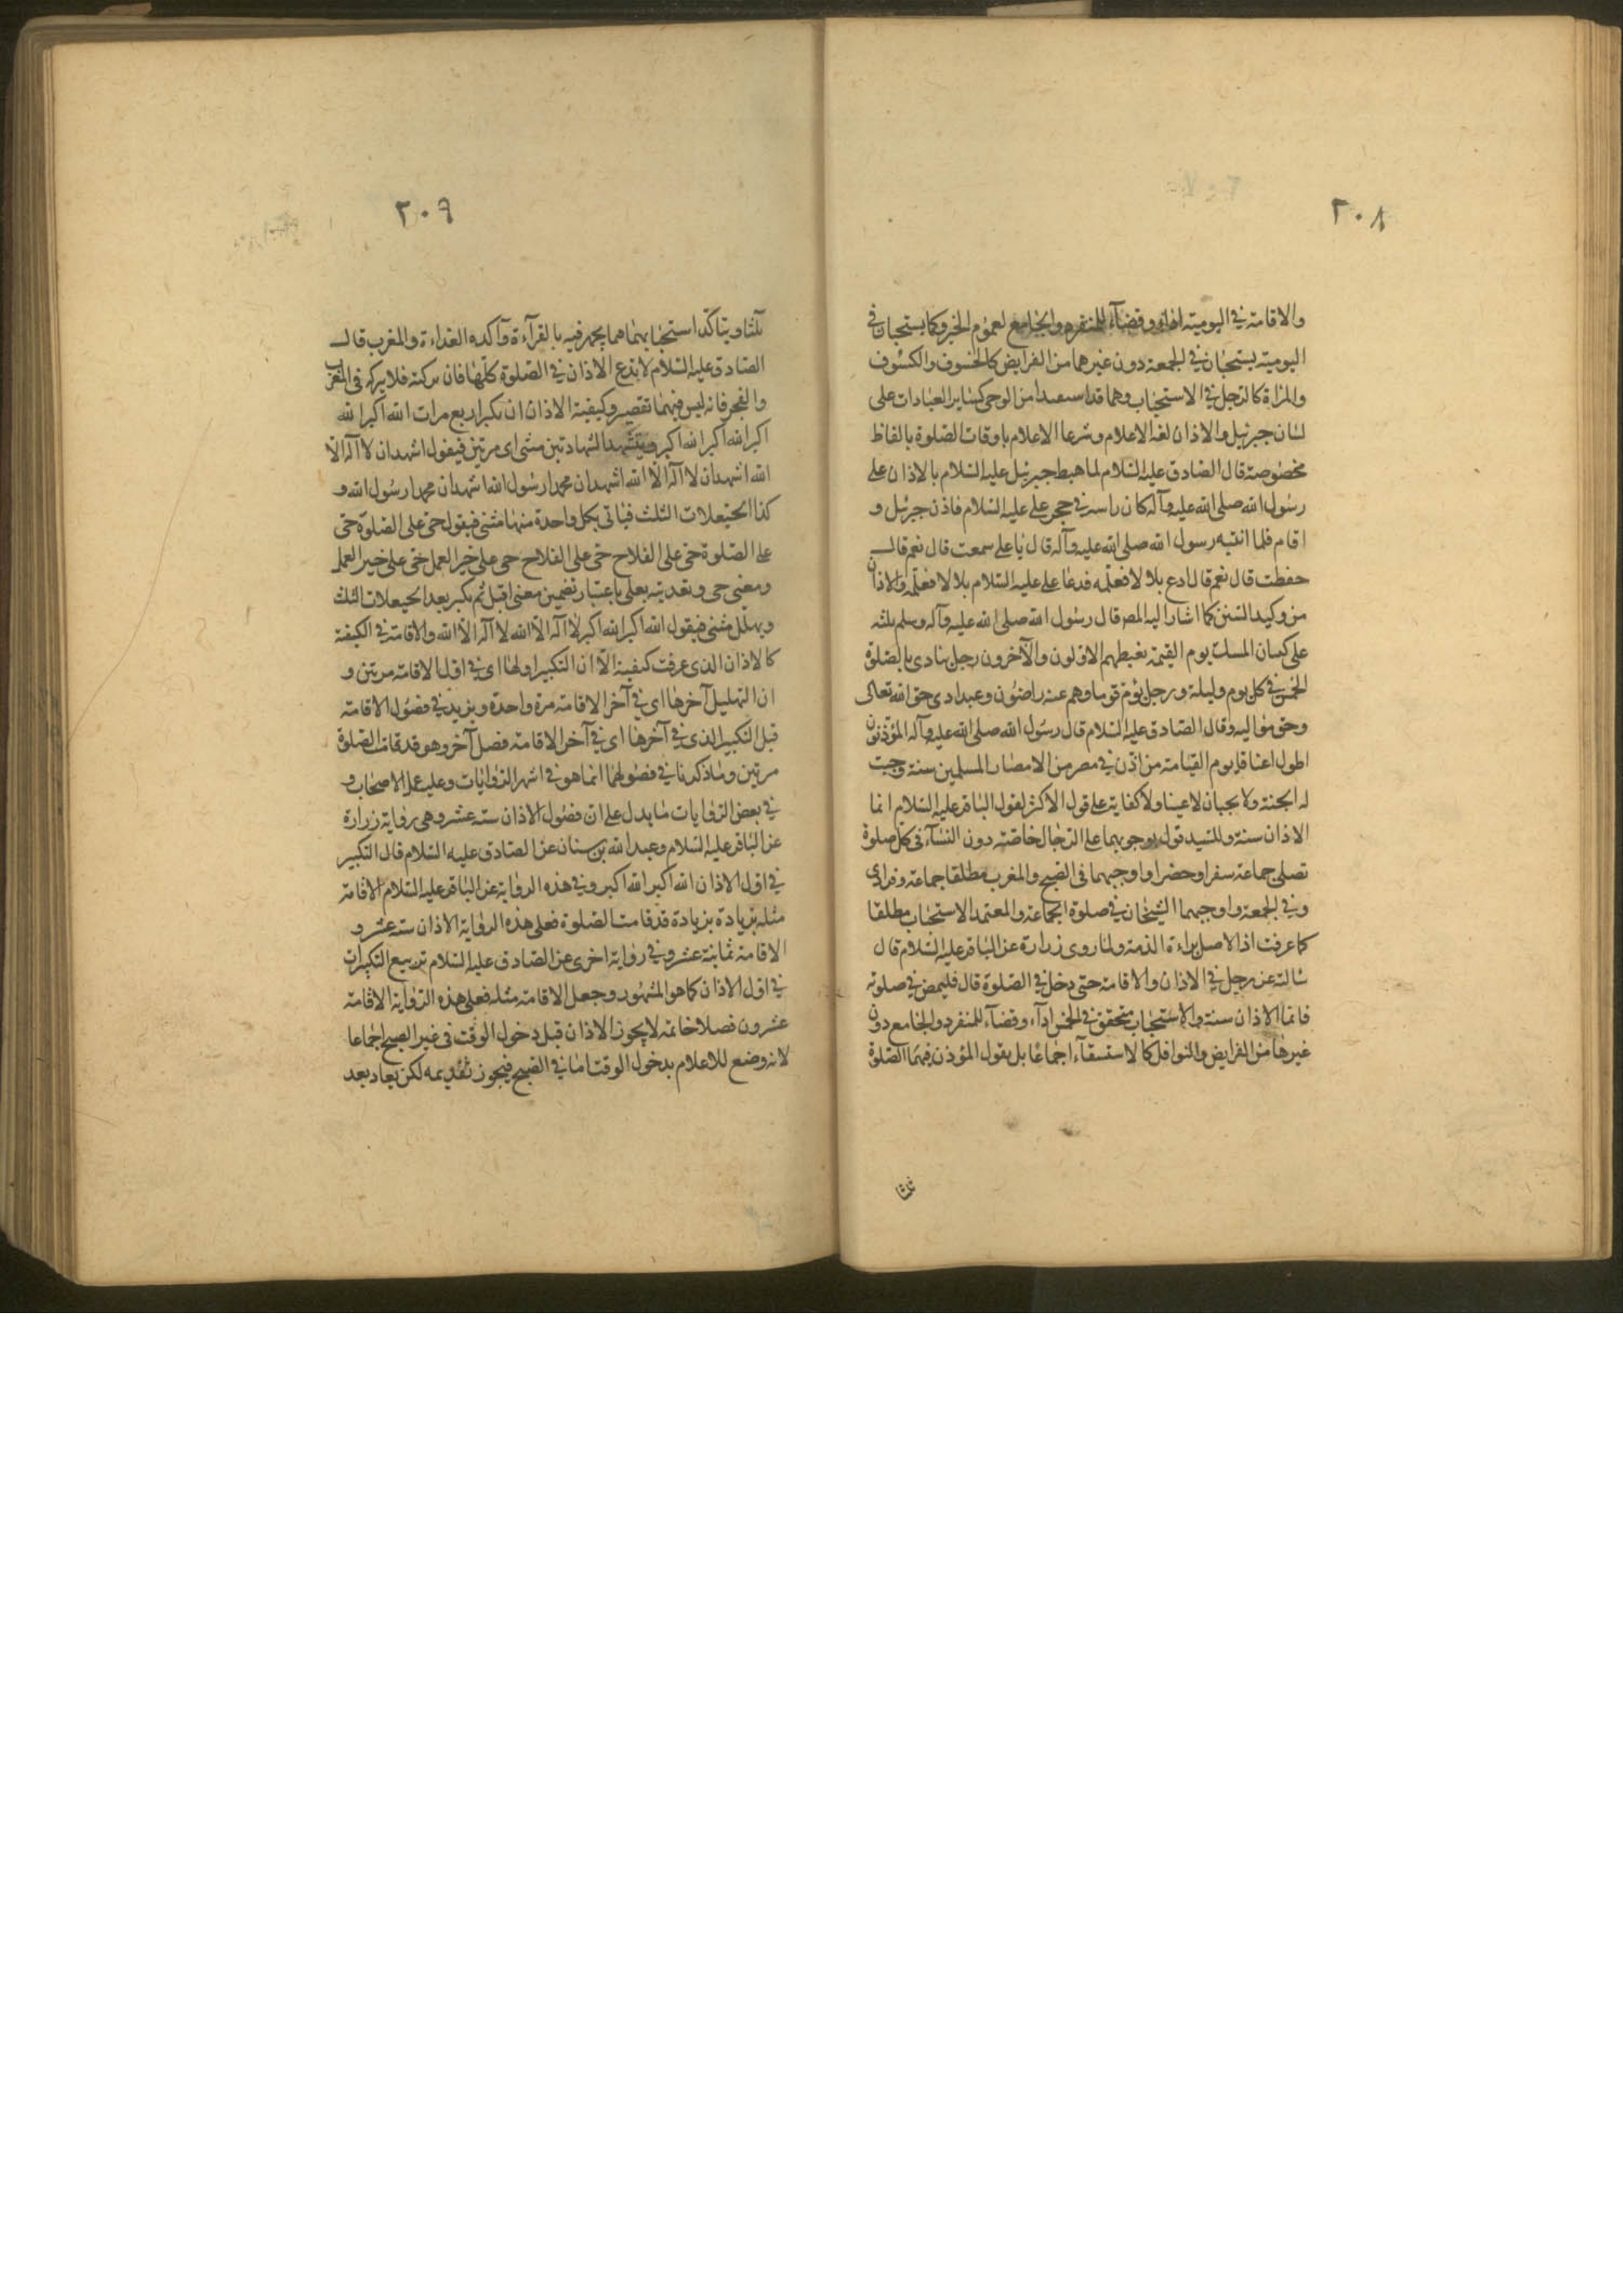 ٢٠٨
والاقامة في اليومية اداء وقضآء للمنفرد والجامع لعموم الخبر وكما يستحبان في
اليومية يستحبان في الجمعة دون غيرهما من الفرايض كالخسوف والكسوف
والمراة كالرجل في الاستحباب وهما قد استفيدا من الوحي كساير العبادات على
لسان جبرئيل والاذان لغة الاعلام وشرعا الاعلام باوقات الصلوة بالفاظ
مخصوصة قال الصادق عليه السلام لما هبط جبرئيل عليه السلام بالاذان على
رسول الله صلى الله عليه وآله كان راسه في حجر علي عليه السلام فاذن جبرئيل و
اقام فلما انتبه رسول الله صلى الله عليه وآله قال يا علي سمعت قال نعم قال
حفظت قال نعم قال ادع بلالا فعلمه فدعا علي عليه السلام بلالا فعلمه والاذان
من وكيد السنن كما اشار اليه المص قال رسول الله صلى الله عليه وآله وسلم ثلثه
على كسان المسك يوم القيمة يغبطهم الاولون والآخرون رجل ينادى بالصلوة
الخمس في كل يوم وليلة ورجل يؤم قوما وهم عنه راضون وعبد ادى حق الله تعالى
وحق مواليه وقال الصادق عليه السلام قال رسول الله صلى الله عليه وآله المؤذنون
اطول اعناقا يوم القيامة من اذن في مصر من الامصار المسلمين سنة وجبت
له الجنة ولا يجبان لا عينا ولا كفاية على قول الاكثر لقول الباقر عليه السلام انما
الاذان سنة وللسيد قول بوجوبهما على الرجال خاصة دون النسآء في كل صلوة
تصلى جماعة سفرا وحضرا واوجبهما في الصبح والمغرب مطلقا جماعة وفرادي
وفي الجمعة واوجبهما الشيخان في صلوة الجماعة والمعتمد الاستحباب مطلقا
كما عرفت اذ الاصل براءة الذمة ولما روى زرارة عن الباقر عليه السلام قال
سالته عن رجل في الاذان والاقامة حتى دخل في الصلوة قال فليمض في صلوته
فانما الاذان سنة والاستحباب متحقق في الخمس ادآء وقضآء للمنفرد والجامع دون
غيرها من الفرايض والنوافل كالاستسقآء اجماعا بل يقول المؤذن فيهما الصلوة
٢٠٩
ثلثا ويتاكد استحبابهما فيما يجهر فيه بالقرآءة وآكده الغداة والمغرب قال
الصادق عليه السلام لا تدع الاذان في الصلوة كلها فان تركته فلا تتركه في المغرب
والفجر فانه ليس فيهما تقصير وكيفية الاذان ان يكبر اربع مرات الله اكبر الله
اكبر الله اكبر الله اكبر ويتشهد الشهادتين مثنى اي مرتين فيقول اشهد ان لا آله الا
الله اشهد ان لا آله الا الله اشهد ان محمدا رسول الله اشهد ان محمدا رسول الله و
كذا الحيعلات الثلث فياتى بكل واحدة منها مثنى فيقول حى على الصلوة حى
على الصلوة حى على الفلاح حى على الفلاح حى على خير العمل حى على خير العمل
ومعنى حى وتعديته بعلى باعتبار تضمين معنى اقبل ثم يكبر بعد الحيعلات الثلث
ويهلل مثنى فيقول الله اكبر الله اكبر لا آله الا الله لا آله الا الله والاقامة في الكيفية
كالاذان الذى عرفت كيفيته الا ان التكبير اولها اى في اول الاقامة مرتين و
ان التهليل آخرها اى في آخر الاقامة مرة واحدة ويزيد في فصول الاقامة
قبل التكبير الذى في آخرها اى في آخر الاقامة فصل آخر وهو قد قامت الصلوة
مرتين وما ذكرنا في فصولهما انما هو في اشهر الروايات وعليه عمل الاصحاب و
في بعض الروايات ما يدل على ان فصول الاذان ستة عشر وهى رواية زرارة
عن الباقر عليه السلام وعبد الله بن سنان عن الصادق عليه السلام قال التكبير
في اول الاذان الله اكبر الله اكبر وفي هذه الرواية عن الباقر عليه السلام الاقامة
مثله بزيادة بزيادة قد قامت الصلوة فعلى هذه الرواية الاذان ستة عشر و
الاقامة ثمانية عشر وفي رواية اخرى عن الصادق عليه السلام تربيع التكبيرات
في اول الاذان كما هو المشهور وجعل الاقامة مثله فعلى هذه الرواية الاقامة
عشرون فصلا خاتمة لا يجوز الاذان قبل دخول الوقت في غير الصبح اجماعا
لانه وضع للاعلام بدخول الوقت اما في الصبح فيجوز تقديمه لكن يعاد بعد